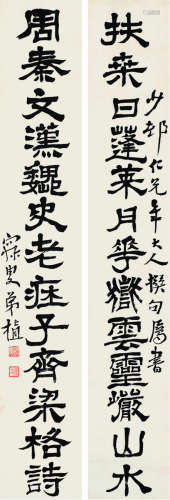 扶桒日蓬萊月華嶽雲靈巖山水
少邨仁兄年大人撰句屬書
周秦文漢魏史老莊子齊梁格詩
寐叟弟植